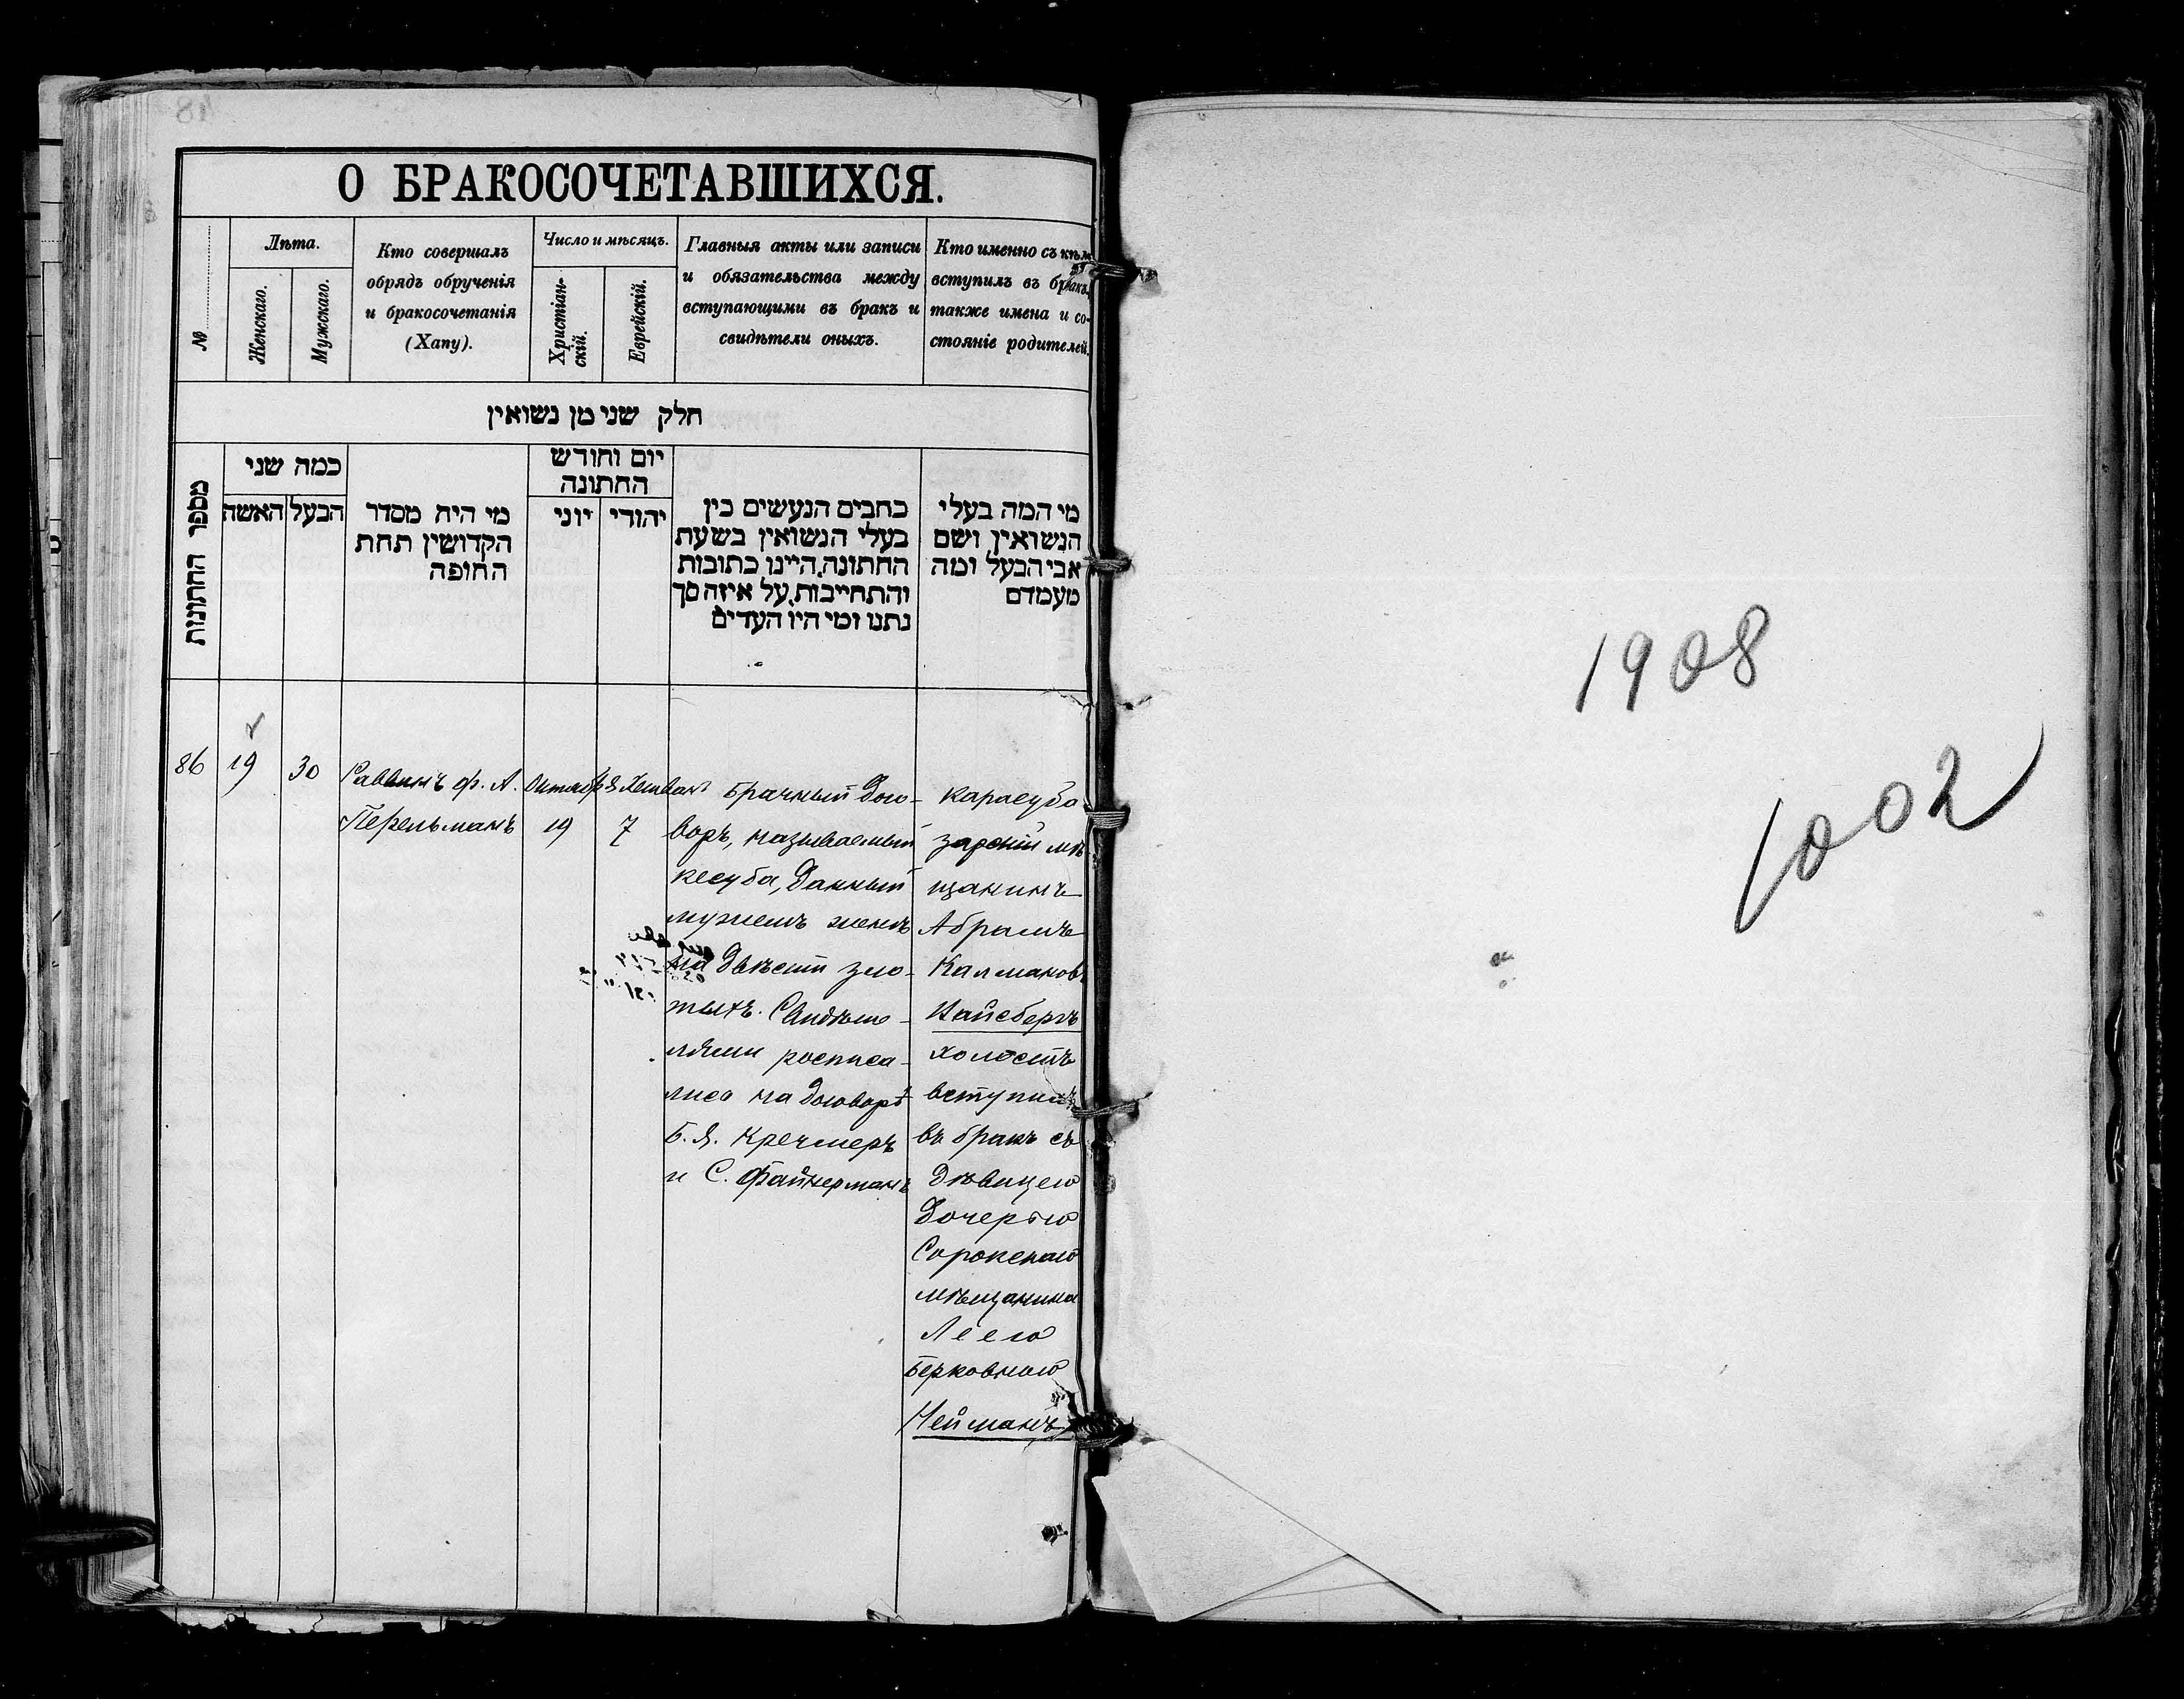 О БРАКОСОЧЕТАВШИХСЯ.
№
Лѣта.
Женскаго.
Мужскаго.
Кто совершалъ
обрядъ обрученія
и бракосочетанія
(Хапу).
Число и мѣсяцъ.
Христіан-
скій.
Еврейскій.
Главныя акты или записи
и обязательства между
вступающими въ бракъ и
свидѣтели оныхъ.
Кто именно съ кѣм
вступилъ въ бракъ,
также имена и со-
стояніе родителей.
חלק שני מן נשואין
מספר החתונות
כמה שני
האשה
הבעל
מי היה מסדר
הקדושין תחת
החופה
יום וחודש
החתונה
יוני
יהודי
כתבים הנעשים בין
בעלי הנשואין בשעת
החתונה, היינו כתובות
והתחייבות, על איזה סך
נתנו ומי היו העדים
מי המה בעלי
הנשואין ושם
אבי הבעל ומה
מעמדם
86
19
30
Раввинъ ф. А.
Перельманъ
Октября
19
Хешван
7
Брачный дого-
воръ, называемый
кесуба, данный
мужемъ женѣ
на двѣсти зло-
тыхъ. Свидѣте-
лями росписа-
лись на договорѣ
Б. Я. Кречмеръ
и С. Файнерманъ
Карасуба-
зарскій мѣ-
щанинъ
Абрамъ
Калманов
Вайсбергъ
холостъ
вступилъ
въ бракъ съ
дѣвицею
дочерью
Сорокскаго
мѣщанина
Леею
Берковною
Нейманъ
1908
1002